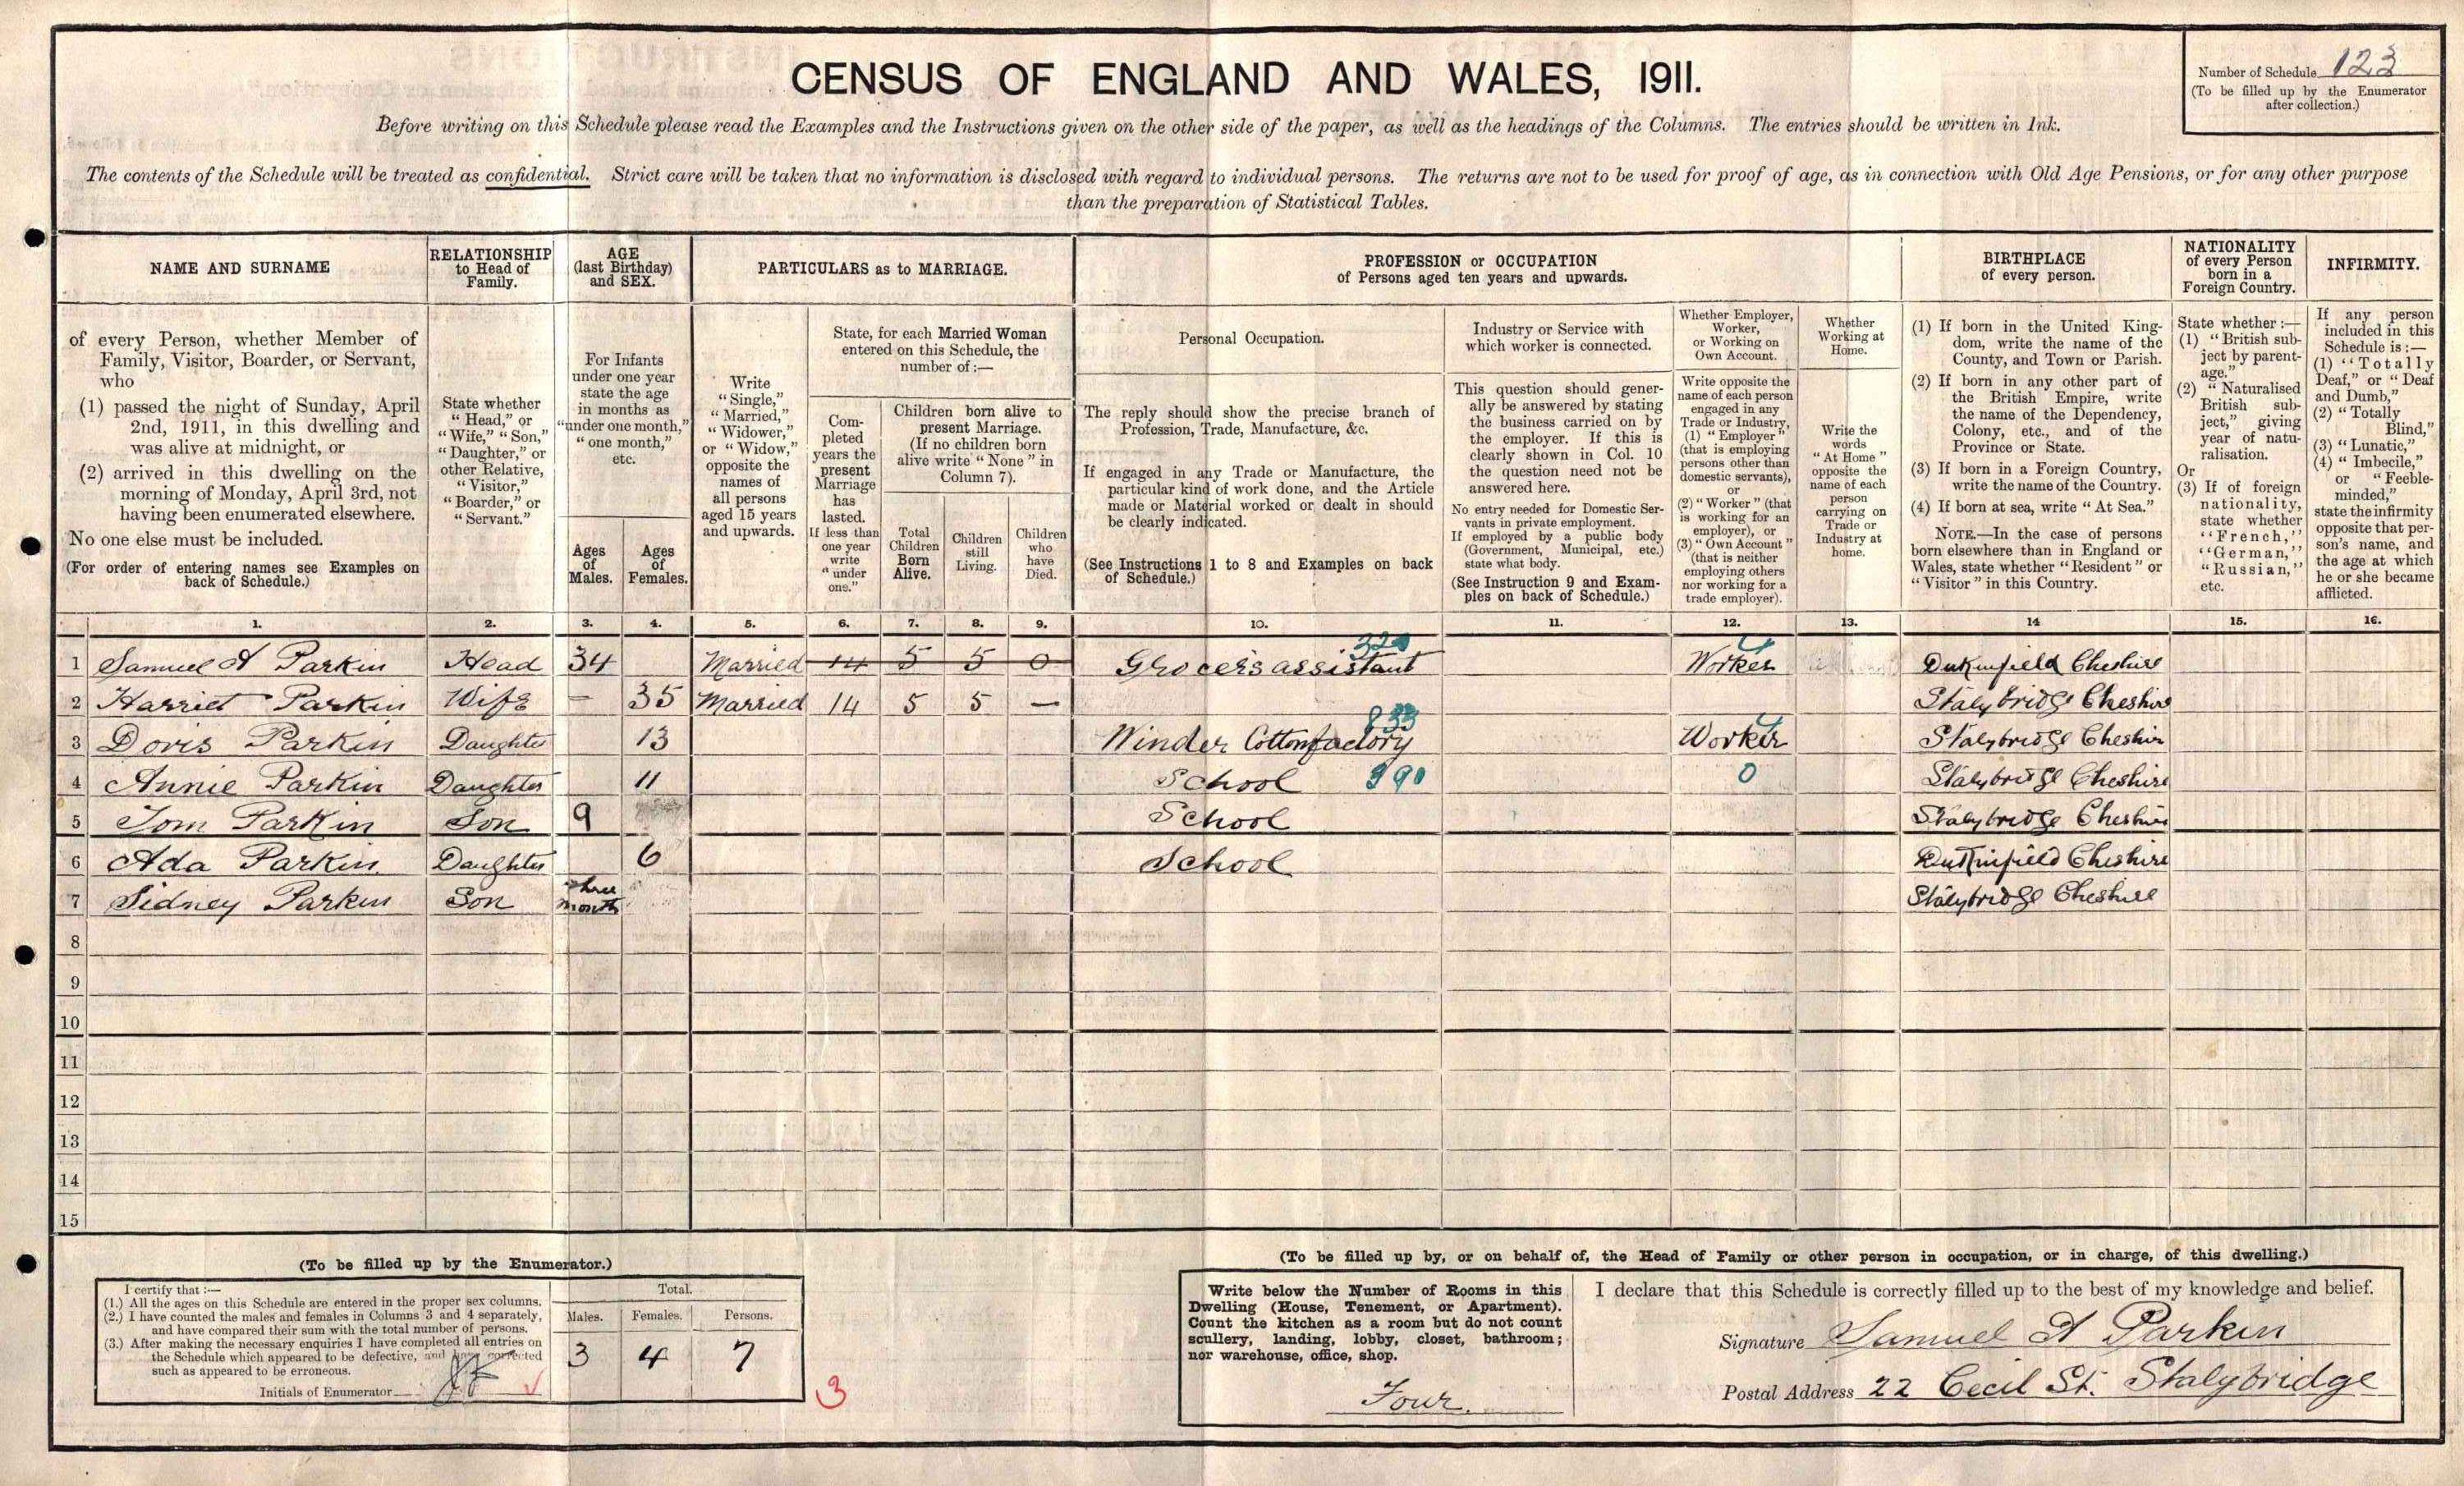 CENSUS OF ENGLAND AND WALES, 1911.
Number of Schedule 123
(To be filled up by the Enumerator
after collection.)
Before writing on this Schedule please read the Examples and the Instructions given on the other side of the paper, as well as the headings of the Columns. The entries should be written in Ink.
The contents of the Schedule will be treated as confidential. Strict care will be taken that no information is disclosed with regard to individual persons. The returns are not to be used for proof of age, as in connection with Old Age Pensions, or for any other purpose
than the preparation of Statistical Tables.
NAME AND SURNAME
of every Person, whether Member of
Family, Visitor, Boarder, or Servant,
who
(1) passed the night of Sunday, April
2nd, 1911, in this dwelling and
was alive at midnight, or
(2) arrived in this dwelling on the
morning of Monday, April 3rd, not
having been enumerated elsewhere.
No one else must be included.
(For order of entering names see Examples on
back of Schedule.)
RELATIONSHIP
to Head of
Family.
State whether
"Head," or
"Wife," "Son,"
"Daughter," or
other Relative,
"Visitor,"
"Boarder," or
"Servant."
AGE
(last Birthday)
and SEX.
For Infants
under one year
state the age
in months as
"under one month,"
"one month,"
etc.
Ages
of
Males.
Ages
of
Females.
PARTICULARS as to MARRIAGE.
Write
"Single,"
"Married,"
"Widower,"
or "Widow,"
opposite the
names of
all persons
aged 15 years
and upwards.
State, for each Married Woman
entered on this Schedule, the
number of:—
Com-
pleted
years the
present
Marriage
has
lasted.
If less than
one year
write
"under
one."
Children born alive to
present Marriage.
(If no children born
alive write "None" in
Column 7).
Total
Children
Born
Alive.
Children
still
Living.
Children
who
have
Died.
PROFESSION or OCCUPATION
of Persons aged ten years and upwards.
Personal Occupation.
The reply should show the precise branch of
Profession, Trade, Manufacture, &c.
If engaged in any Trade or Manufacture, the
particular kind of work done, and the Article
made or Material worked or dealt in should
be clearly indicated.
(See Instructions 1 to 8 and Examples on back
of Schedule.)
Industry or Service with
which worker is connected.
This question should gener-
ally be answered by stating
the business carried on by
the employer. If this is
clearly shown in Col. 10
the question need not be
answered here.
No entry needed for Domestic Ser-
vants in private employment.
If employed by a public body
(Government, Municipal, etc.)
state what body.
(See Instruction 9 and Exam-
ples on back of Schedule.)
Whether Employer,
Worker,
or Working on
Own Account.
Write opposite the
name of each person
engaged in any
Trade or Industry,
(1) "Employer"
(that is employing
persons other than
domestic servants),
or
(2) "Worker" (that
is working for an
employer), or
(3) "Own Account"
(that is neither
employing others
nor working for a
trade employer).
Whether
Working at
Home.
Write the
words
"At Home"
opposite the
name of each
person
carrying on
Trade or
Industry at
home.
BIRTHPLACE
of every person.
(1) If born in the United King-
dom, write the name of the
County, and Town or Parish.
(2) If born in any other part of
the British Empire, write
the name of the Dependency,
Colony, etc., and of the
Province or State.
(3) If born in a Foreign Country,
write the name of the Country.
(4) If born at sea, write "At Sea."
NOTE.—In the case of persons
born elsewhere than in England or
Wales, state whether "Resident" or
"Visitor" in this Country.
NATIONALITY
of every Person
born in a
Foreign Country.
State whether:—
(1) "British sub-
ject by parent-
age."
(2) "Naturalised
British sub-
ject," giving
year of natu-
ralisation.
Or
(3) If of foreign
nationality,
state whether
"French,"
"German,"
"Russian,"
etc.
INFIRMITY.
If any person
included in this
Schedule is:—
(1) "Totally
Deaf," or "Deaf
and Dumb,"
(2) "Totally
Blind,"
(3) "Lunatic,"
(4) "Imbecile,"
or "Feeble-
minded,"
state the infirmity
opposite that per-
son's name, and
the age at which
he or she became
afflicted.
1. 2. 3. 4. 5. 6. 7. 8. 9. 10. 11. 12. 13. 14 15. 16.
1 Samuel A Parkin Head 34 Married 14 5 5 0 Grocers assistant 320 Worker Dukinfield Cheshire
2 Harriet Parkin Wife – 35 Married 14 5 5 – Stalybridge Cheshire
3 Doris Parkin Daughter 13 Winder Cotton factory 833 Worker Stalybridge Cheshire
4 Annie Parkin Daughter 11 School 390 0 Stalybridge Cheshire
5 Tom Parkin Son 9 School Stalybridge Cheshire
6 Ada Parkin Daughter 6 School Dukinfield Cheshire
7 Sidney Parkin Son three month Stalybridge Cheshire
8
9
10
11
12
13
14
15
(To be filled up by the Enumerator.)
I certify that:—
(1.) All the ages on this Schedule are entered in the proper sex columns.
(2.) I have counted the males and females in Columns 3 and 4 separately,
and have compared their sum with the total number of persons.
(3.) After making the necessary enquiries I have completed all entries on
the Schedule which appeared to be defective, and have corrected
such as appeared to be erroneous.
Initials of Enumerator
Total.
Males. Females. Persons.
3 4 7
3
(To be filled up by, or on behalf of, the Head of Family or other person in occupation, or in charge, of this dwelling.)
Write below the Number of Rooms in this
Dwelling (House, Tenement, or Apartment).
Count the kitchen as a room but do not count
scullery, landing, lobby, closet, bathroom;
nor warehouse, office, shop.
Four.
I declare that this Schedule is correctly filled up to the best of my knowledge and belief.
Signature Samuel A Parkin
Postal Address 22 Cecil St. Stalybridge